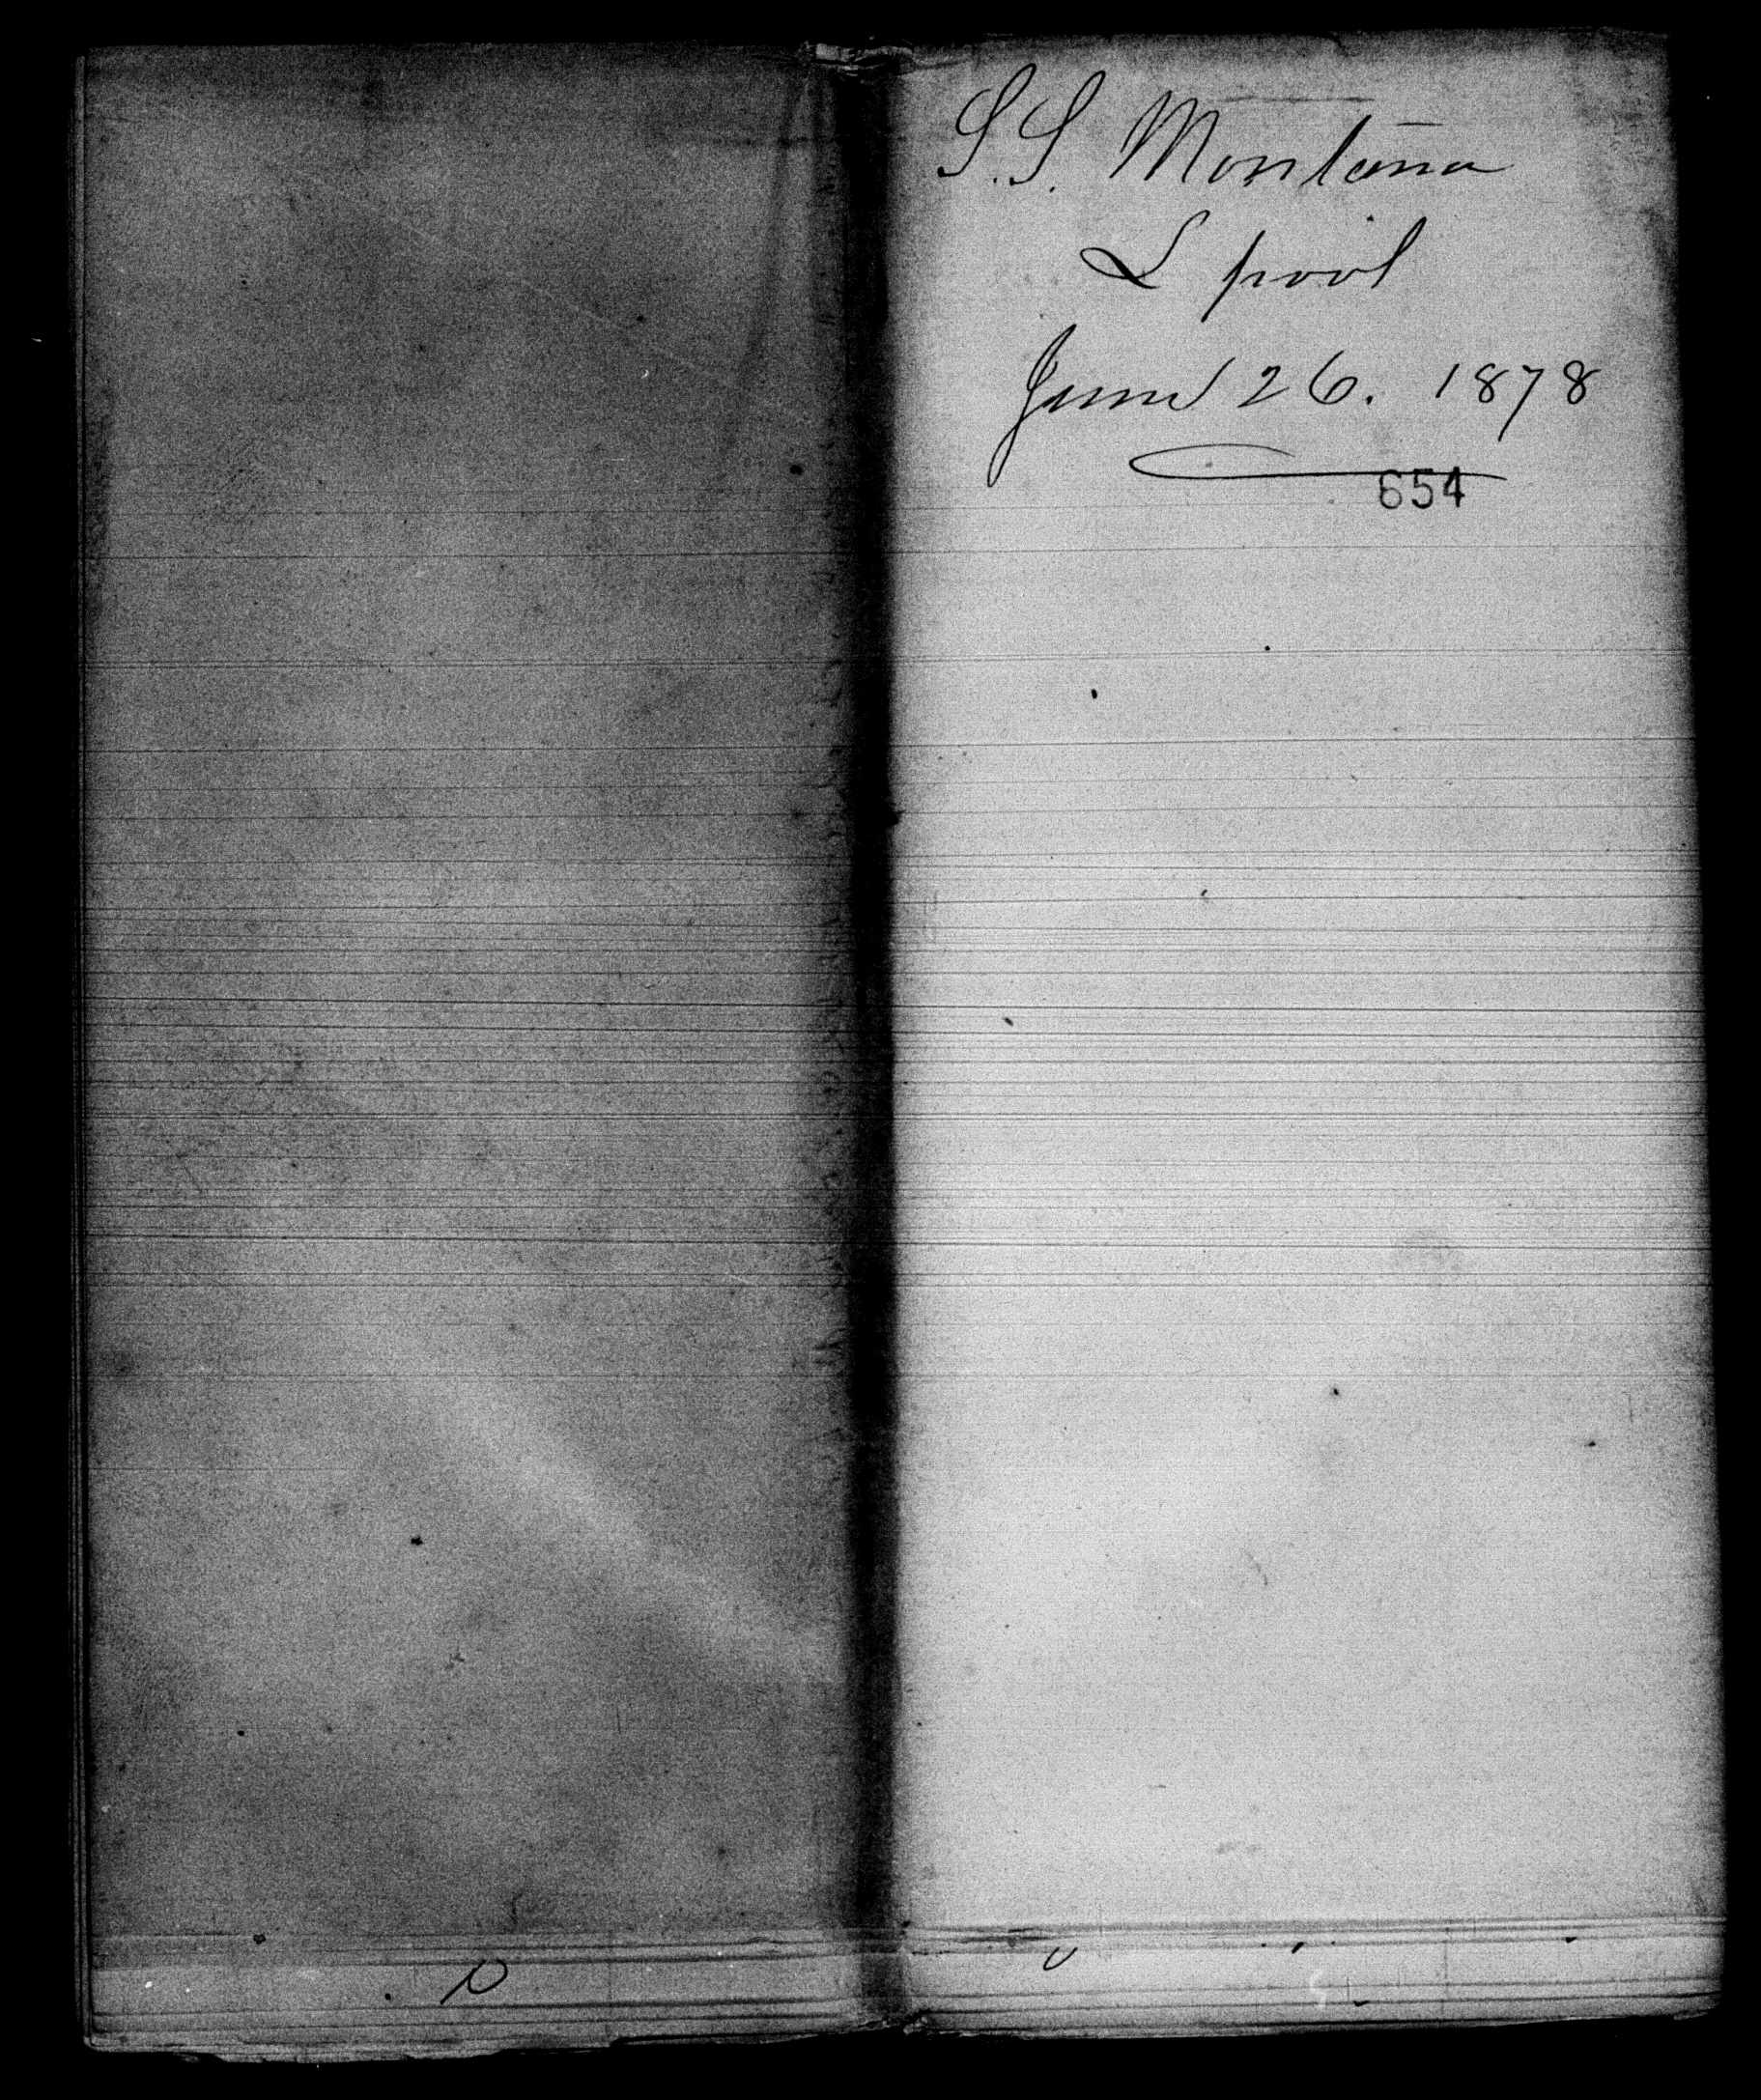 S.S. Montana
L pool
June 26. 1878
654